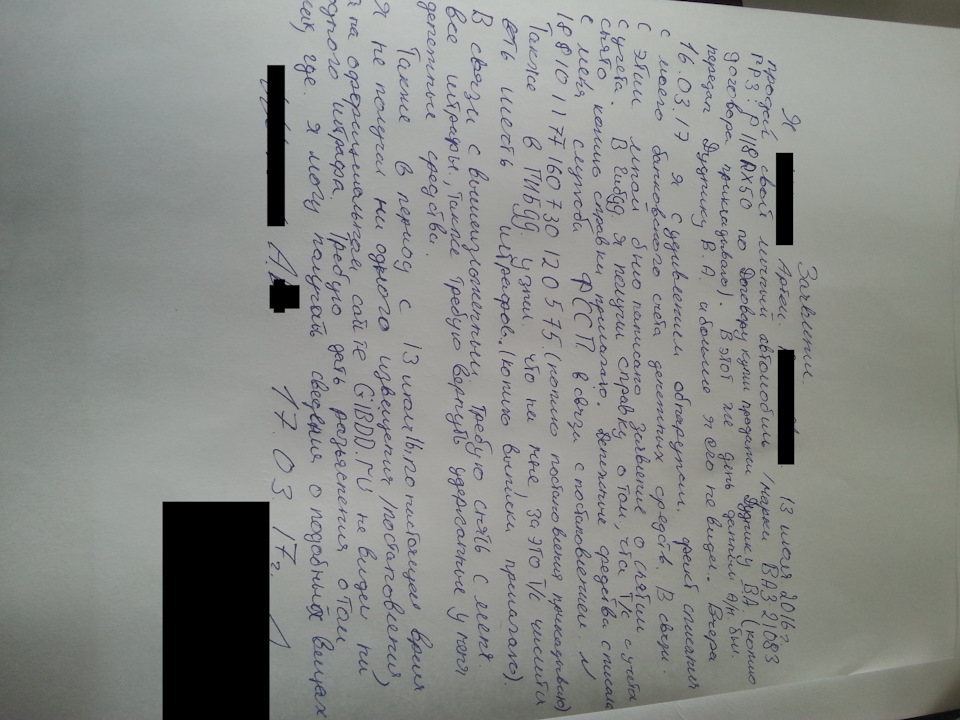 Заявление.
Я Артем. 13 июля 2016г
продал свой личный автомобиль (марки ВАЗ 21083
ГРЗ: Р118АХ50 по Договору купли продажи Дуднику В.А. (копию
договора прикладываю). В этот же день данный а/м был
передан Дуднику В.А и больше я его не видел. Вчера
16.03.17 я с удивлением обнаружил факт списания
с моего банковского счёта денежных средств. В связи
с этим мной было написано заявление о снятии т/с с учета
с учета. В Гибдд я получил справку о том, что т/с
снято, копию справки прилагаю. Денежные средства списала
с меня служба ФССП в связи с постановлением
18810177160730120575 (копию постановления прикладываю)
Также в ГИБДД узнал что на мне, за это т/с числится
есть шесть штрафов. (копию выписки прилагаю).
В связи с вышеизложенным требую снять с меня
все штрафы, также требую вернуть удержанные у меня
денежные средства.
Также в период с 13 июля 16, по настоящее время
Я не получал ни одного извещения/постановления,
на официальном сайте GIBDD.RU не видел ни
одного штрафа. Требую дать разъяснения о том
как, где я могу получать сведения о подобных вещах
17.03.17г.